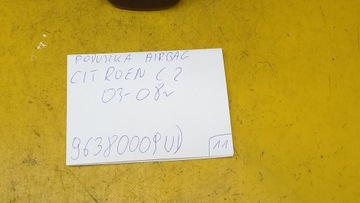 PODUSZKA AIRBAG
CITROEN C2
03-08r
9638000PUD
11